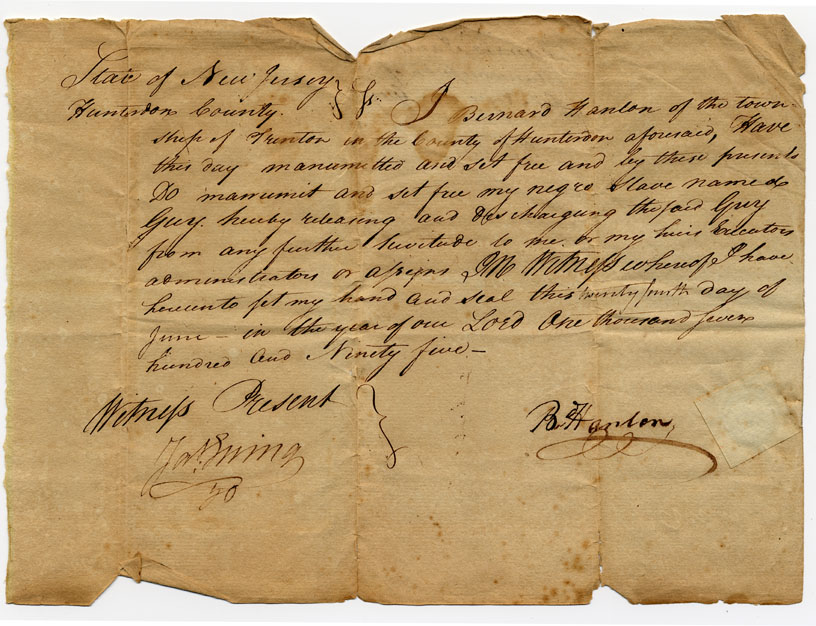 State of New Jersey } Ss. I
Hunterdon County. Bernard Hanlon of the town-
ship of Trenton in the County of Hunterdon aforesaid, Have
this day manumitted and set free and by these presents
Do manumit and set free my negro slave named
Guy hereby releasing and discharging the said Guy
from any further servitude to me or my heirs Executors
administrators or assigns, In Witness whereof I have
hereunto set my hand and seal this twenty day of
June – in the year of our Lord One thousand seven
hundred and Ninety five –
Witness Present }
B Hanlon,
Jas. Ewing